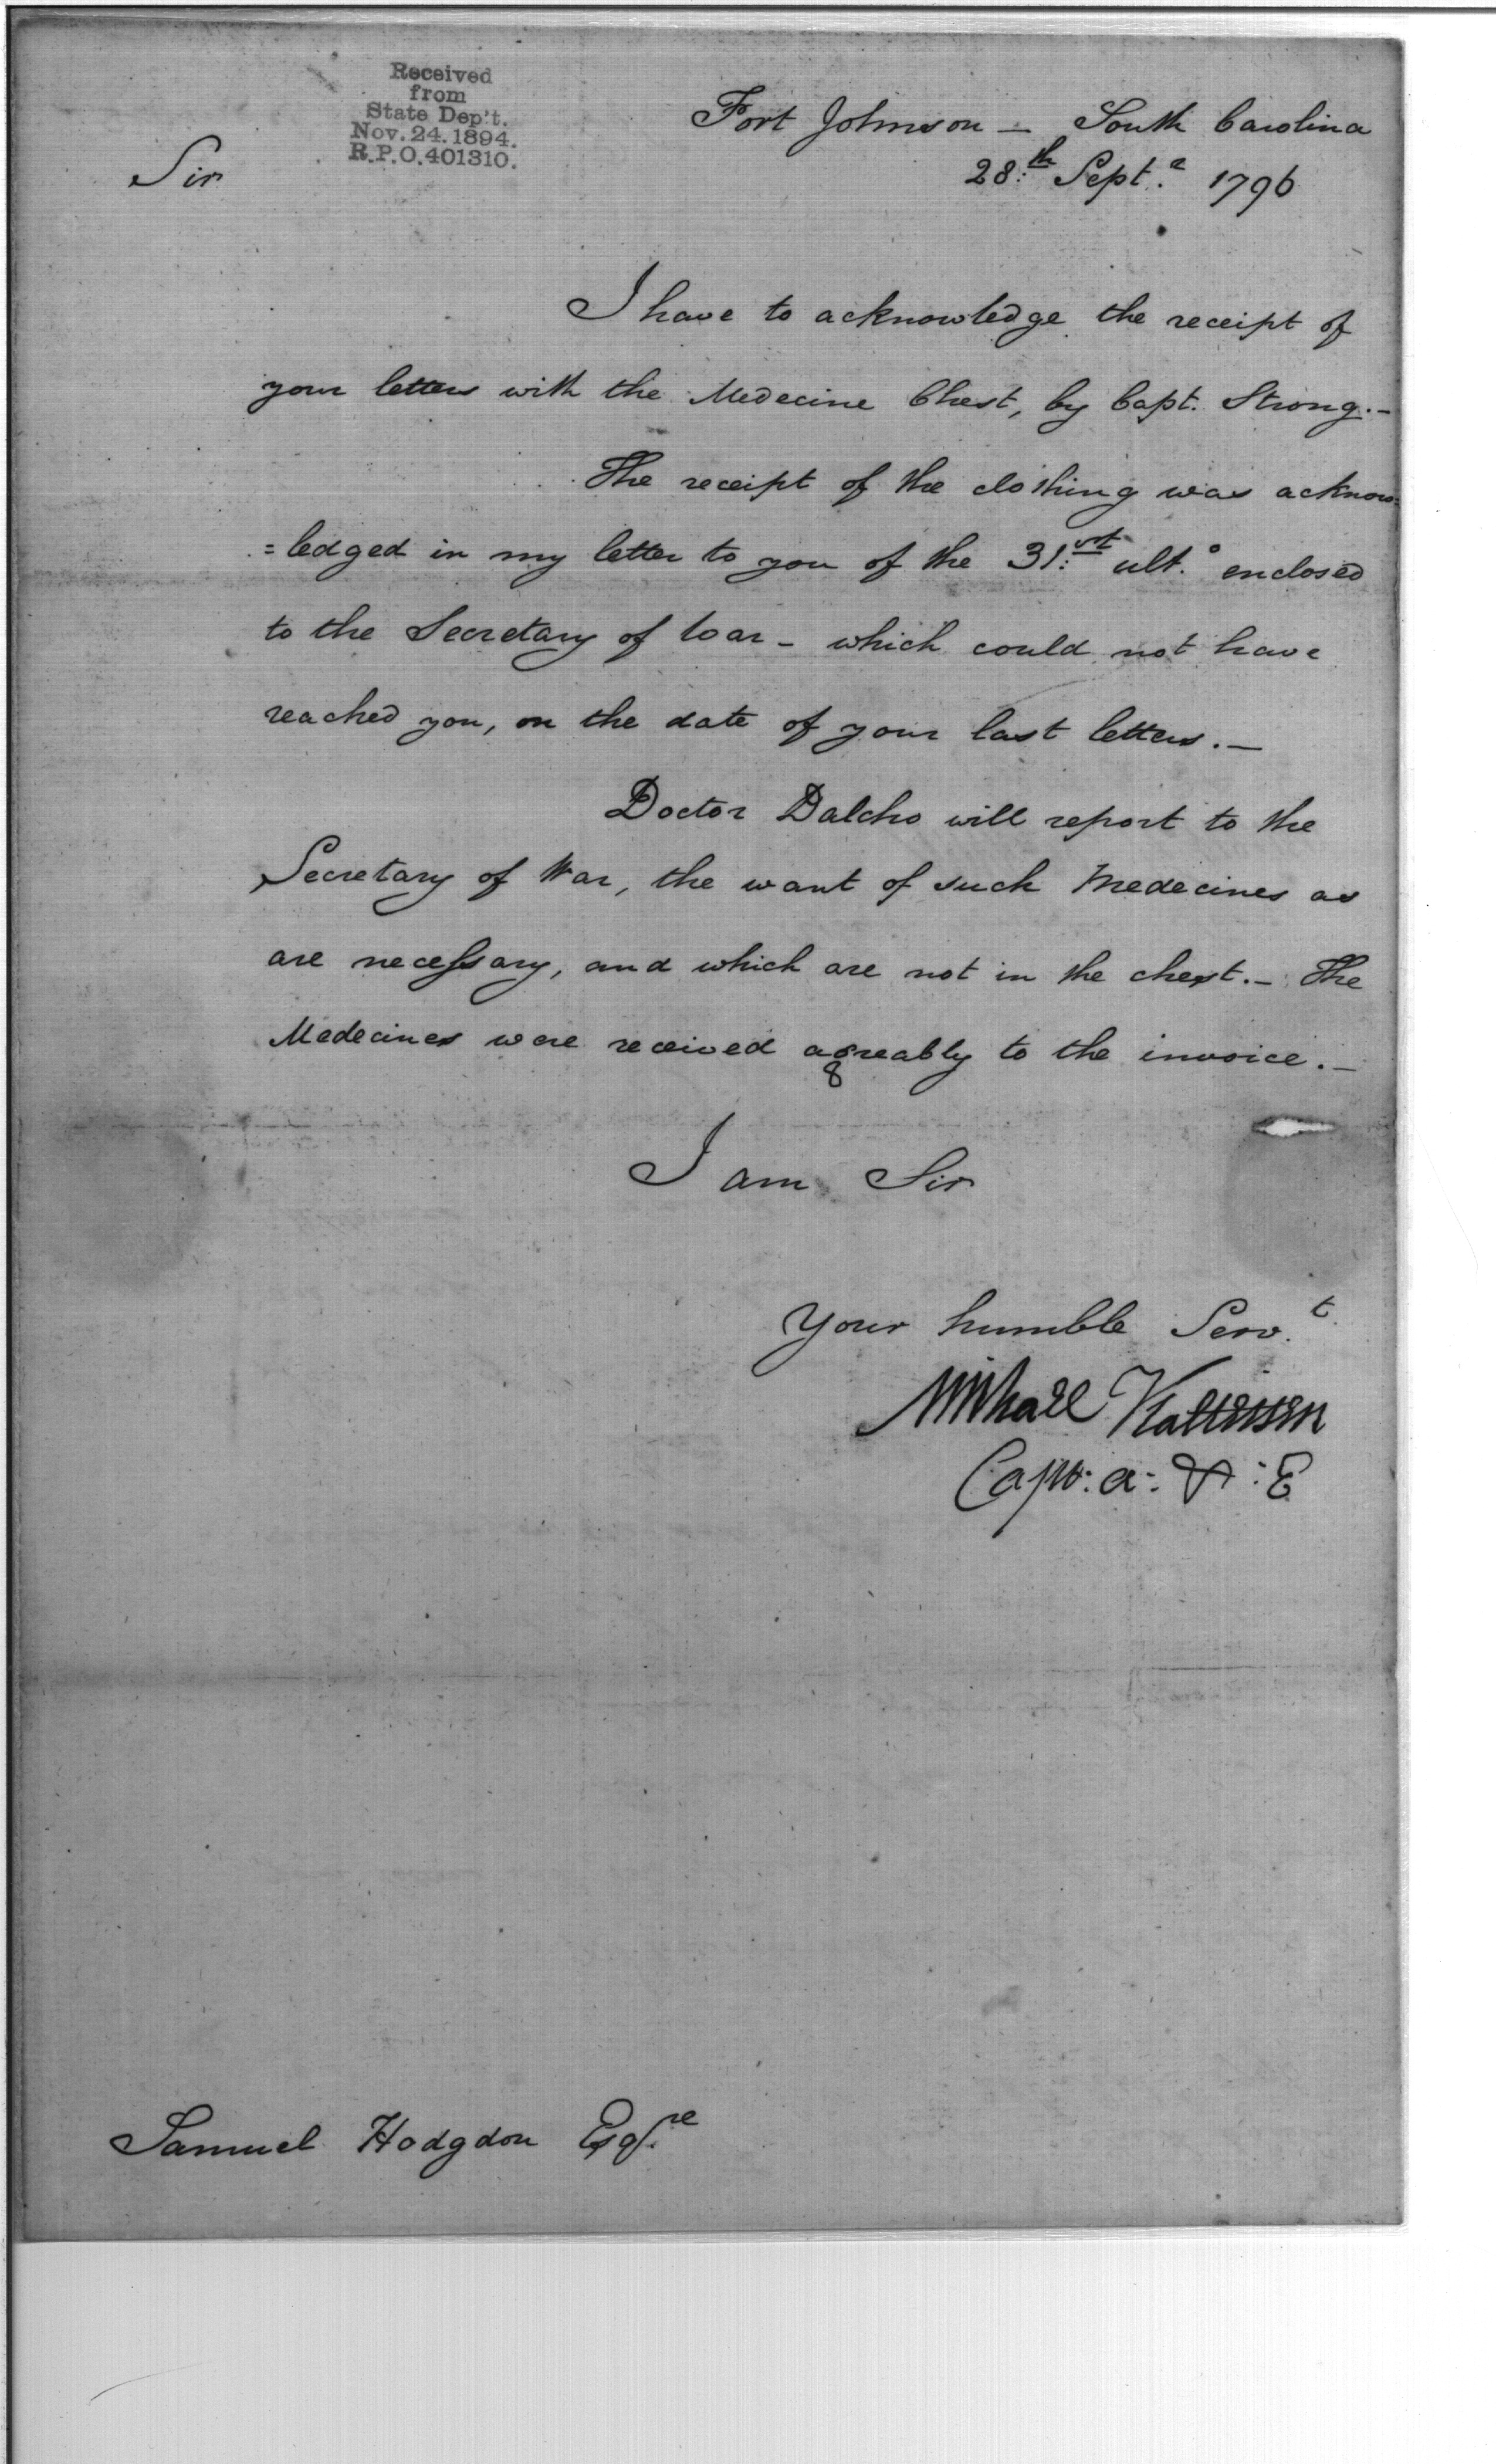 Received
from
State Dep't.
Nov. 24. 1894.
R.P.O. 401310.
Fort Johnson – South Carolina
28:th Sept.r 1796
Sir
I have to acknowledge the receipt of
your letters with the Medecine Chest, by Capt. Strong.–
The receipt of the clothing was acknow=
=ledged in my letter to you of the 31:st ult.o enclosed
to the Secretary of War – which could not have
reached you, on the date of your last letters.–
Doctor Dalcho will report to the
Secretary of War, the want of such Medecines as
are necessary, and which are not in the chest.– The
Medecines were received agreably to the invoice.–
I am Sir
Your humble Serv.t
Michael Kalteisen
Capt: a: & : E
Samuel Hodgdon Esq.re